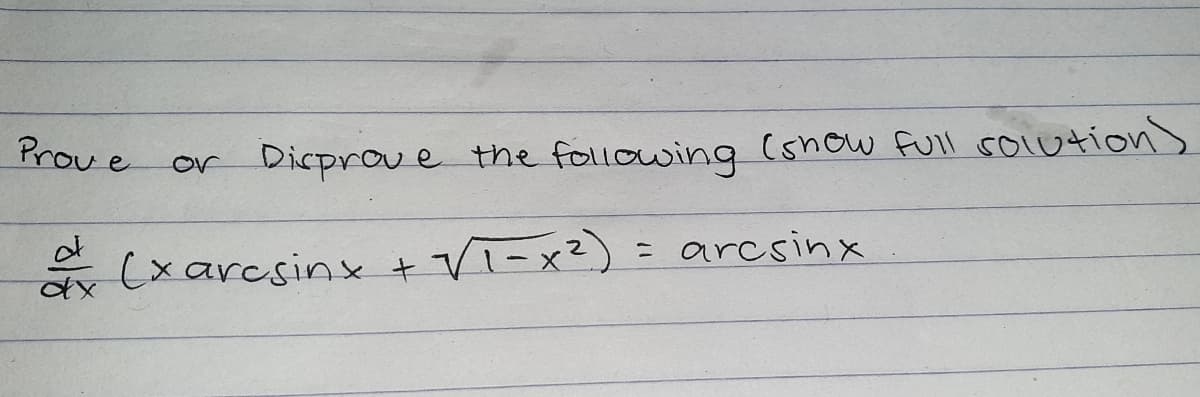 Prove or Disprove the following (show full solution)
d/dx (x arcsinx + √1-x²) = arcsinx